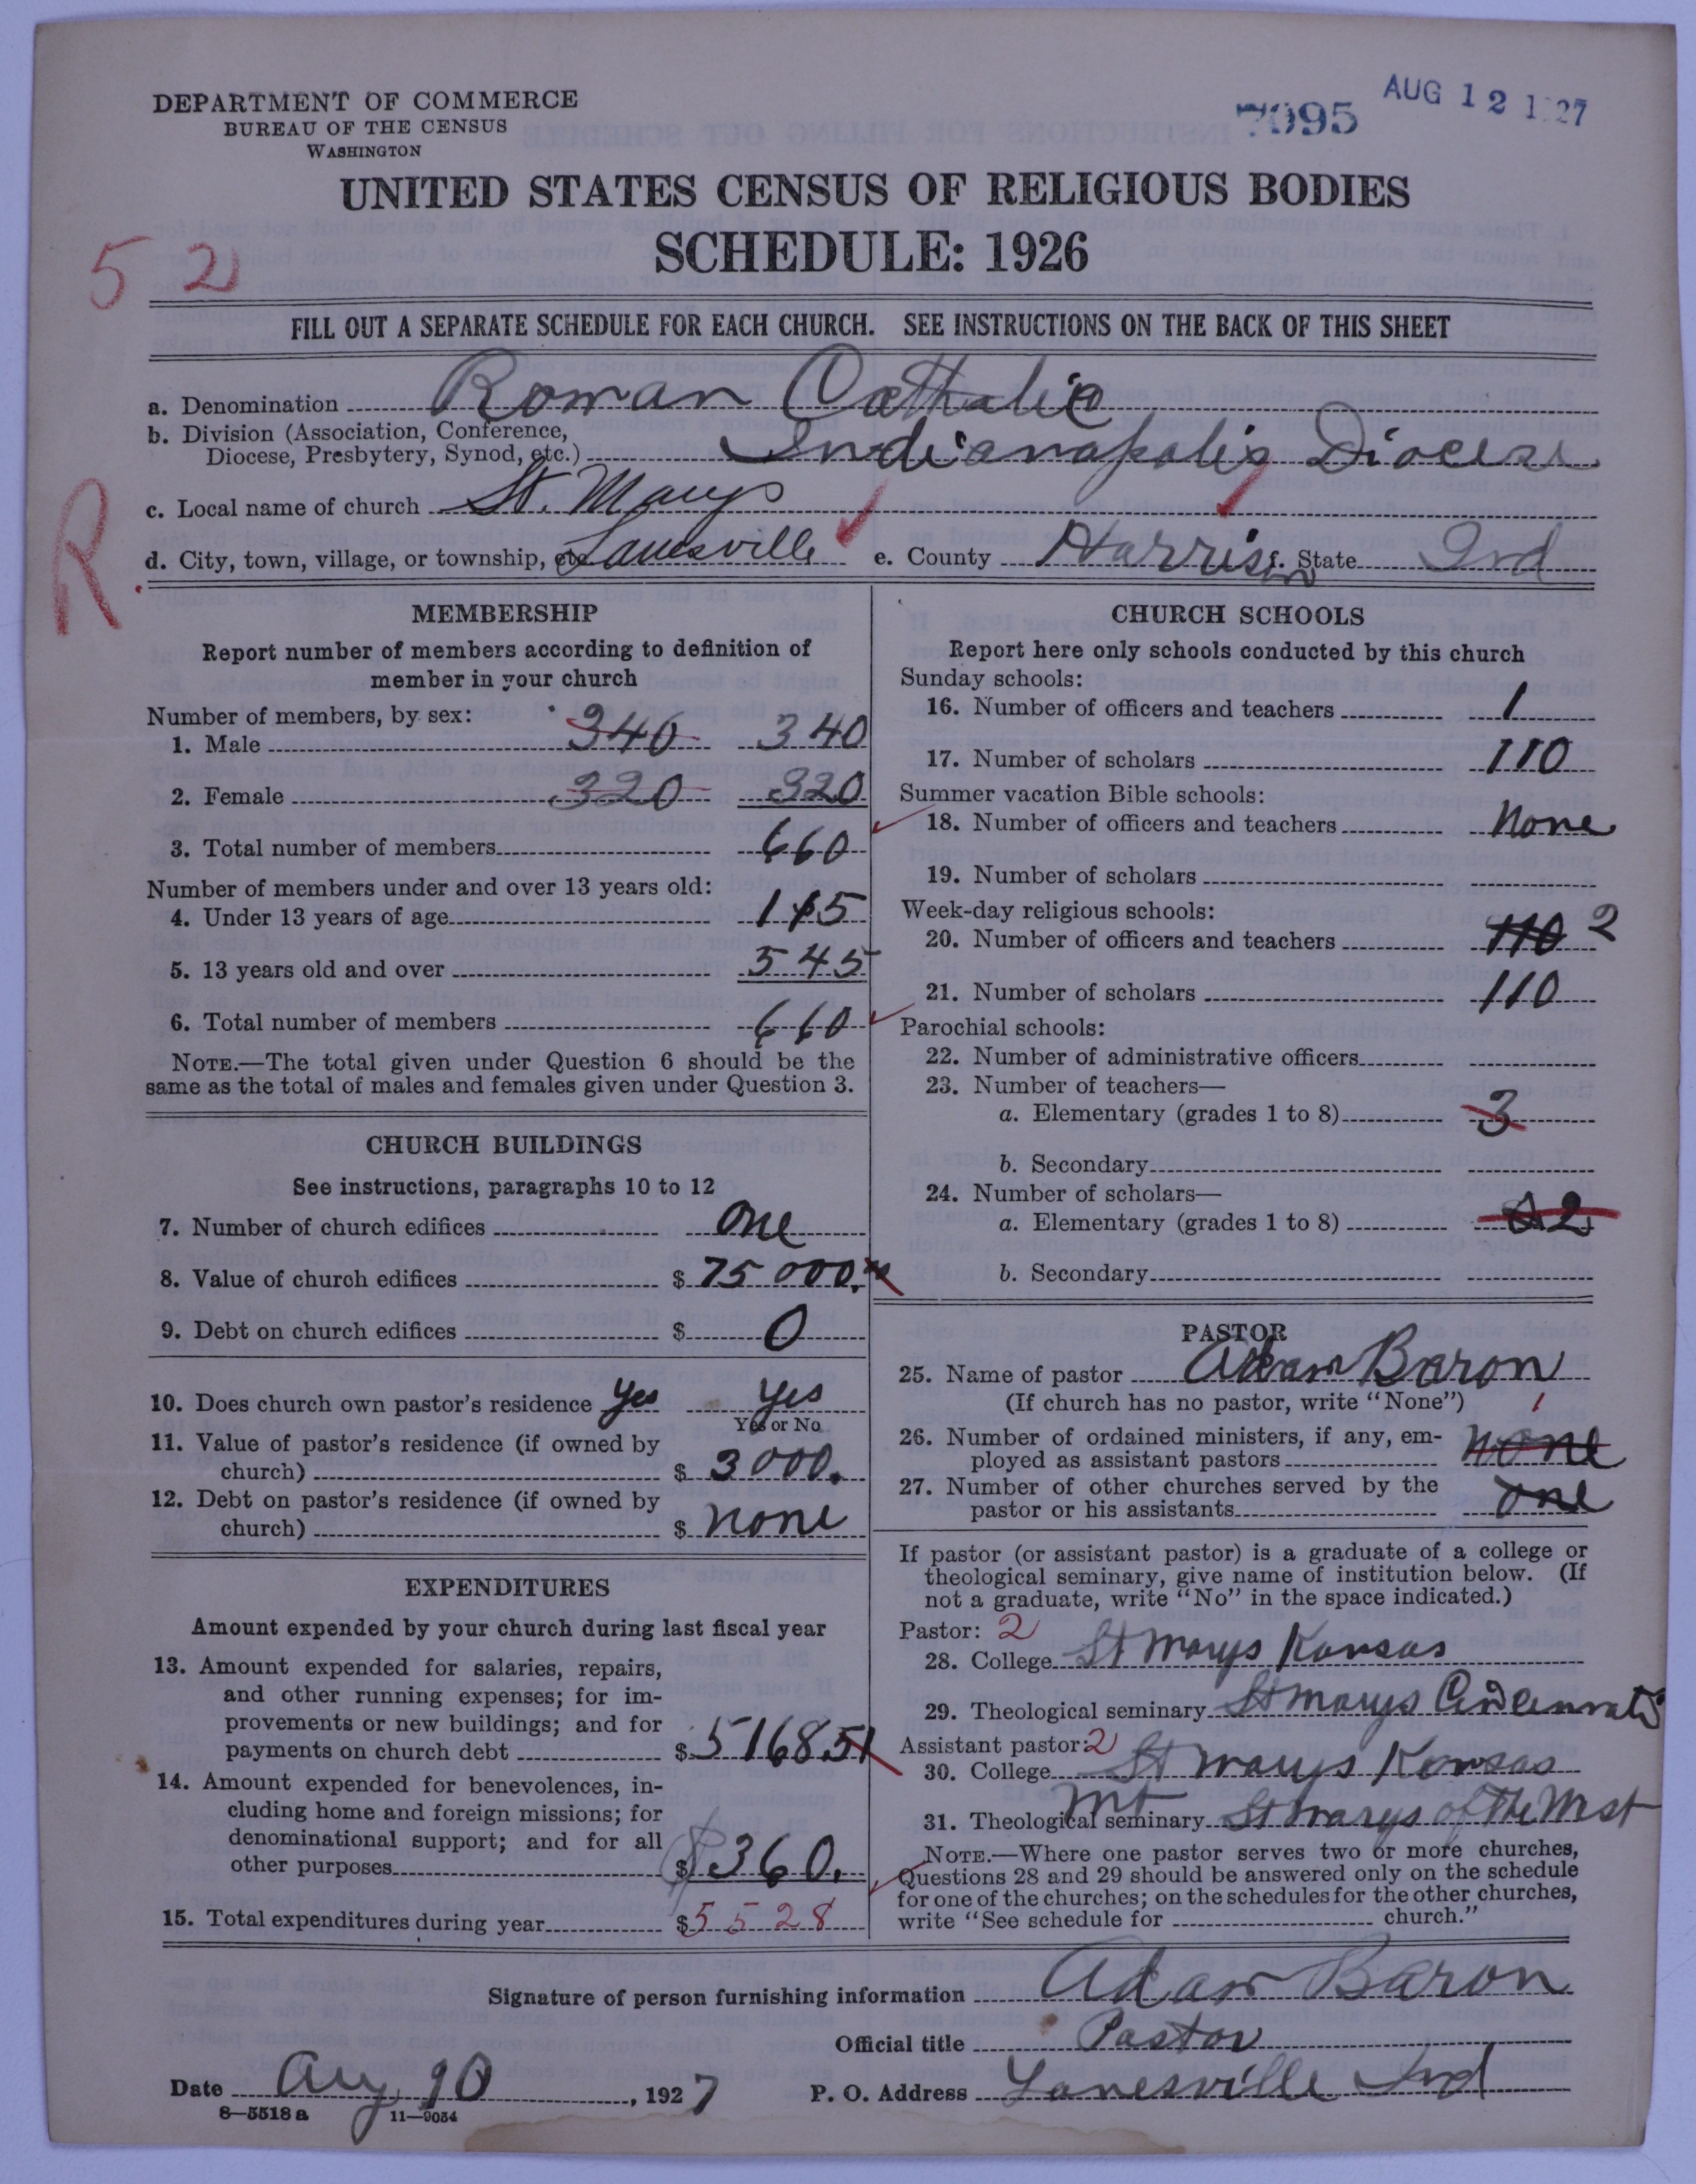 DEPARTMENT OF COMMERCE
BUREAU OF THE CENSUS
WASHINGTON
7095
AUG 12 1927
UNITED STATES CENSUS OF RELIGIOUS BODIES
SCHEDULE: 1926
52
FILL OUT A SEPARATE SCHEDULE FOR EACH CHURCH. SEE INSTRUCTIONS ON THE BACK OF THIS SHEET
a. Denomination Roman Catholic
b. Division (Association, Conference,
Diocese, Presbytery, Synod, etc.) Indianapolis Diocese
R.
c. Local name of church St. Marys
d. City, town, village, or township, etc Lanesville e. County Harrison f. State Ind
MEMBERSHIP
Report number of members according to definition of
member in your church
Number of members, by sex:
1. Male 340 340
2. Female 320 320
3. Total number of members 660
Number of members under and over 13 years old:
4. Under 13 years of age 115
5. 13 years old and over 545
6. Total number of members 660
NOTE.—The total given under Question 6 should be the
same as the total of males and females given under Question 3.
CHURCH BUILDINGS
See instructions, paragraphs 10 to 12
7. Number of church edifices One
8. Value of church edifices $ 75000.
9. Debt on church edifices $ 0
10. Does church own pastor's residence yes yes
Yes or No
11. Value of pastor's residence (if owned by
church) $ 3000.
12. Debt on pastor's residence (if owned by
church) $ none
EXPENDITURES
Amount expended by your church during last fiscal year
13. Amount expended for salaries, repairs,
and other running expenses; for im-
provements or new buildings; and for
payments on church debt $ 5168 51
14. Amount expended for benevolences, in-
cluding home and foreign missions; for
denominational support; and for all
other purposes $ 360.
15. Total expenditures during year $ 5528
CHURCH SCHOOLS
Report here only schools conducted by this church
Sunday schools:
16. Number of officers and teachers 1
17. Number of scholars 110
Summer vacation Bible schools:
18. Number of officers and teachers none
19. Number of scholars
Week-day religious schools:
20. Number of officers and teachers 110 2
21. Number of scholars 110
Parochial schools:
22. Number of administrative officers
23. Number of teachers—
a. Elementary (grades 1 to 8) 3
b. Secondary
24. Number of scholars—
a. Elementary (grades 1 to 8)
b. Secondary
PASTOR
25. Name of pastor Adam Baron
(If church has no pastor, write "None") 1
26. Number of ordained ministers, if any, em-
ployed as assistant pastors none
27. Number of other churches served by the
pastor or his assistants one
If pastor (or assistant pastor) is a graduate of a college or
theological seminary, give name of institution below. (If
not a graduate, write "No" in the space indicated.)
Pastor: 2
28. College St Marys Kansas
29. Theological seminary St Marys Cincinnati
Assistant pastor: 2
30. College St Marys Kansas
31. Theological seminary Mt St Marys of the West
NOTE.—Where one pastor serves two or more churches,
Questions 28 and 29 should be answered only on the schedule
for one of the churches; on the schedules for the other churches,
write "See schedule for church."
Signature of person furnishing information Adam Baron
Official title Pastor
Date Aug 10, 1927 P. O. Address Lanesville Ind
8—5518 a 11—9034